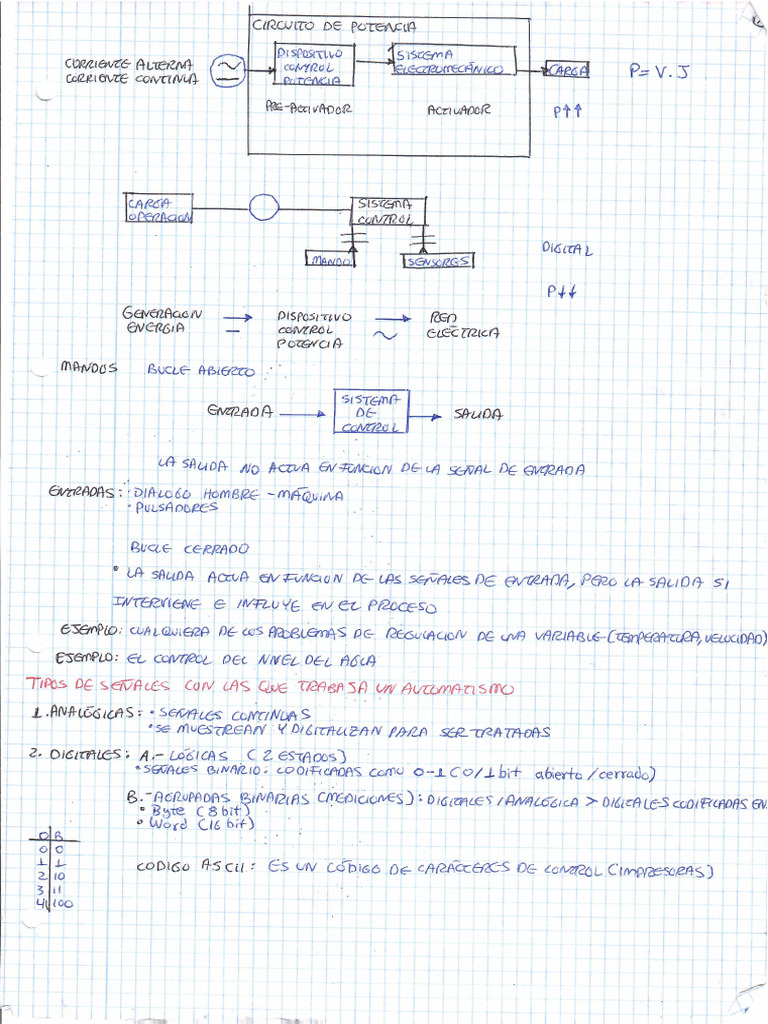 CIRCUITO DE POTENCIA
CORRIENTE ALTERNA
CORRIENTE CONTINUA
DISPOSITIVO
CONTROL
POTENCIA
SISTEMA
ELECTROMECÁNICO
CARGA
P= V. J
PRE-ACTIVADOR
ACTIVADOR
P↑↑
CARGA
OPERACION
SISTEMA
CONTROL
MANDO
SENSORES
DIGITAL
P↓↓
GENERACION
ENERGIA
DISPOSITIVO
CONTROL
POTENCIA
RED
ELÉCTRICA
MANDOS BUCLE ABIERTO
ENTRADA
SISTEMA
DE
CONTROL
SALIDA
LA SALIDA NO ACTUA EN FUNCION DE LA SEÑAL DE ENTRADA
ENTRADAS: · DIALOGO HOMBRE - MÁQUINA
· PULSADORES
BUCLE CERRADO
• LA SALIDA ACTUA EN FUNCION DE LAS SEÑALES DE ENTRADA, PERO LA SALIDA SI
INTERVIENE E INFLUYE EN EL PROCESO
EJEMPLO: CUALQUIERA DE LOS PROBLEMAS DE REGULACION DE UNA VARIABLE (TEMPERATURA, VELOCIDAD)
EJEMPLO: EL CONTROL DEL NIVEL DEL AGUA
TIPOS DE SEÑALES CON LAS QUE TRABAJA UN AUTOMATISMO
1. ANALÓGICAS: • SEÑALES CONTINUAS
• SE MUESTREAN Y DIGITALIZAN PARA SER TRATADAS
2. DIGITALES: A.- LÓGICAS (2 ESTADOS)
• SEÑALES BINARIO. CODIFICADAS COMO 0-1 (0/1 bit abierto/cerrado)
B.- AGRUPADAS BINARIAS (MEDICIONES): DIGITALES/ANALÓGICA > DIGITALES CODIFICADAS EN
• Byte (8 bit)
• Word (16 bit)
D B
0 0
1 1
2 10
3 11
4 100
CODIGO ASCII: ES UN CÓDIGO DE CARÁCTERES DE CONTROL (IMPRESORAS)